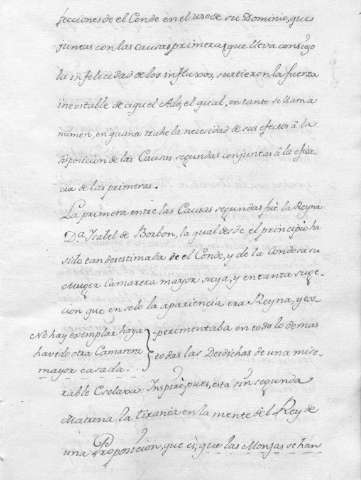 fecciones de el Conde en el uso de su Dominio, que
juntas con las causas primeras que lleva consigo
la infelicidad de los influxos, surtieron la fuerza
inevitable de aquel Ado, el qual, en tanto se llama
en quanto trahe la necesidad de sus efectos â la
disposicion de las Causas segundas conjuntas â la
cia de las primeras.
La primera entre las Causas segundas fuè la Reyna
D.ª Isabel de Borbon, la qual desde el principio ha
sido tan desestimada de el Conde, y de la Condesa su
muger Camarera mayor suya, y en tanta suge-
cion que en solo la apariencia era Reyna, y ex-
No hay exemplar haya
havido otra Camarera
mayor casada.
perimentaba en todo lo demas
todas las Desdichas de una mise-
rable Esclava. Inspirò pues, esta sin segunda
Matrona la tirania en la mente del Rey de
una Proposicion, que es; que las Monjas se han